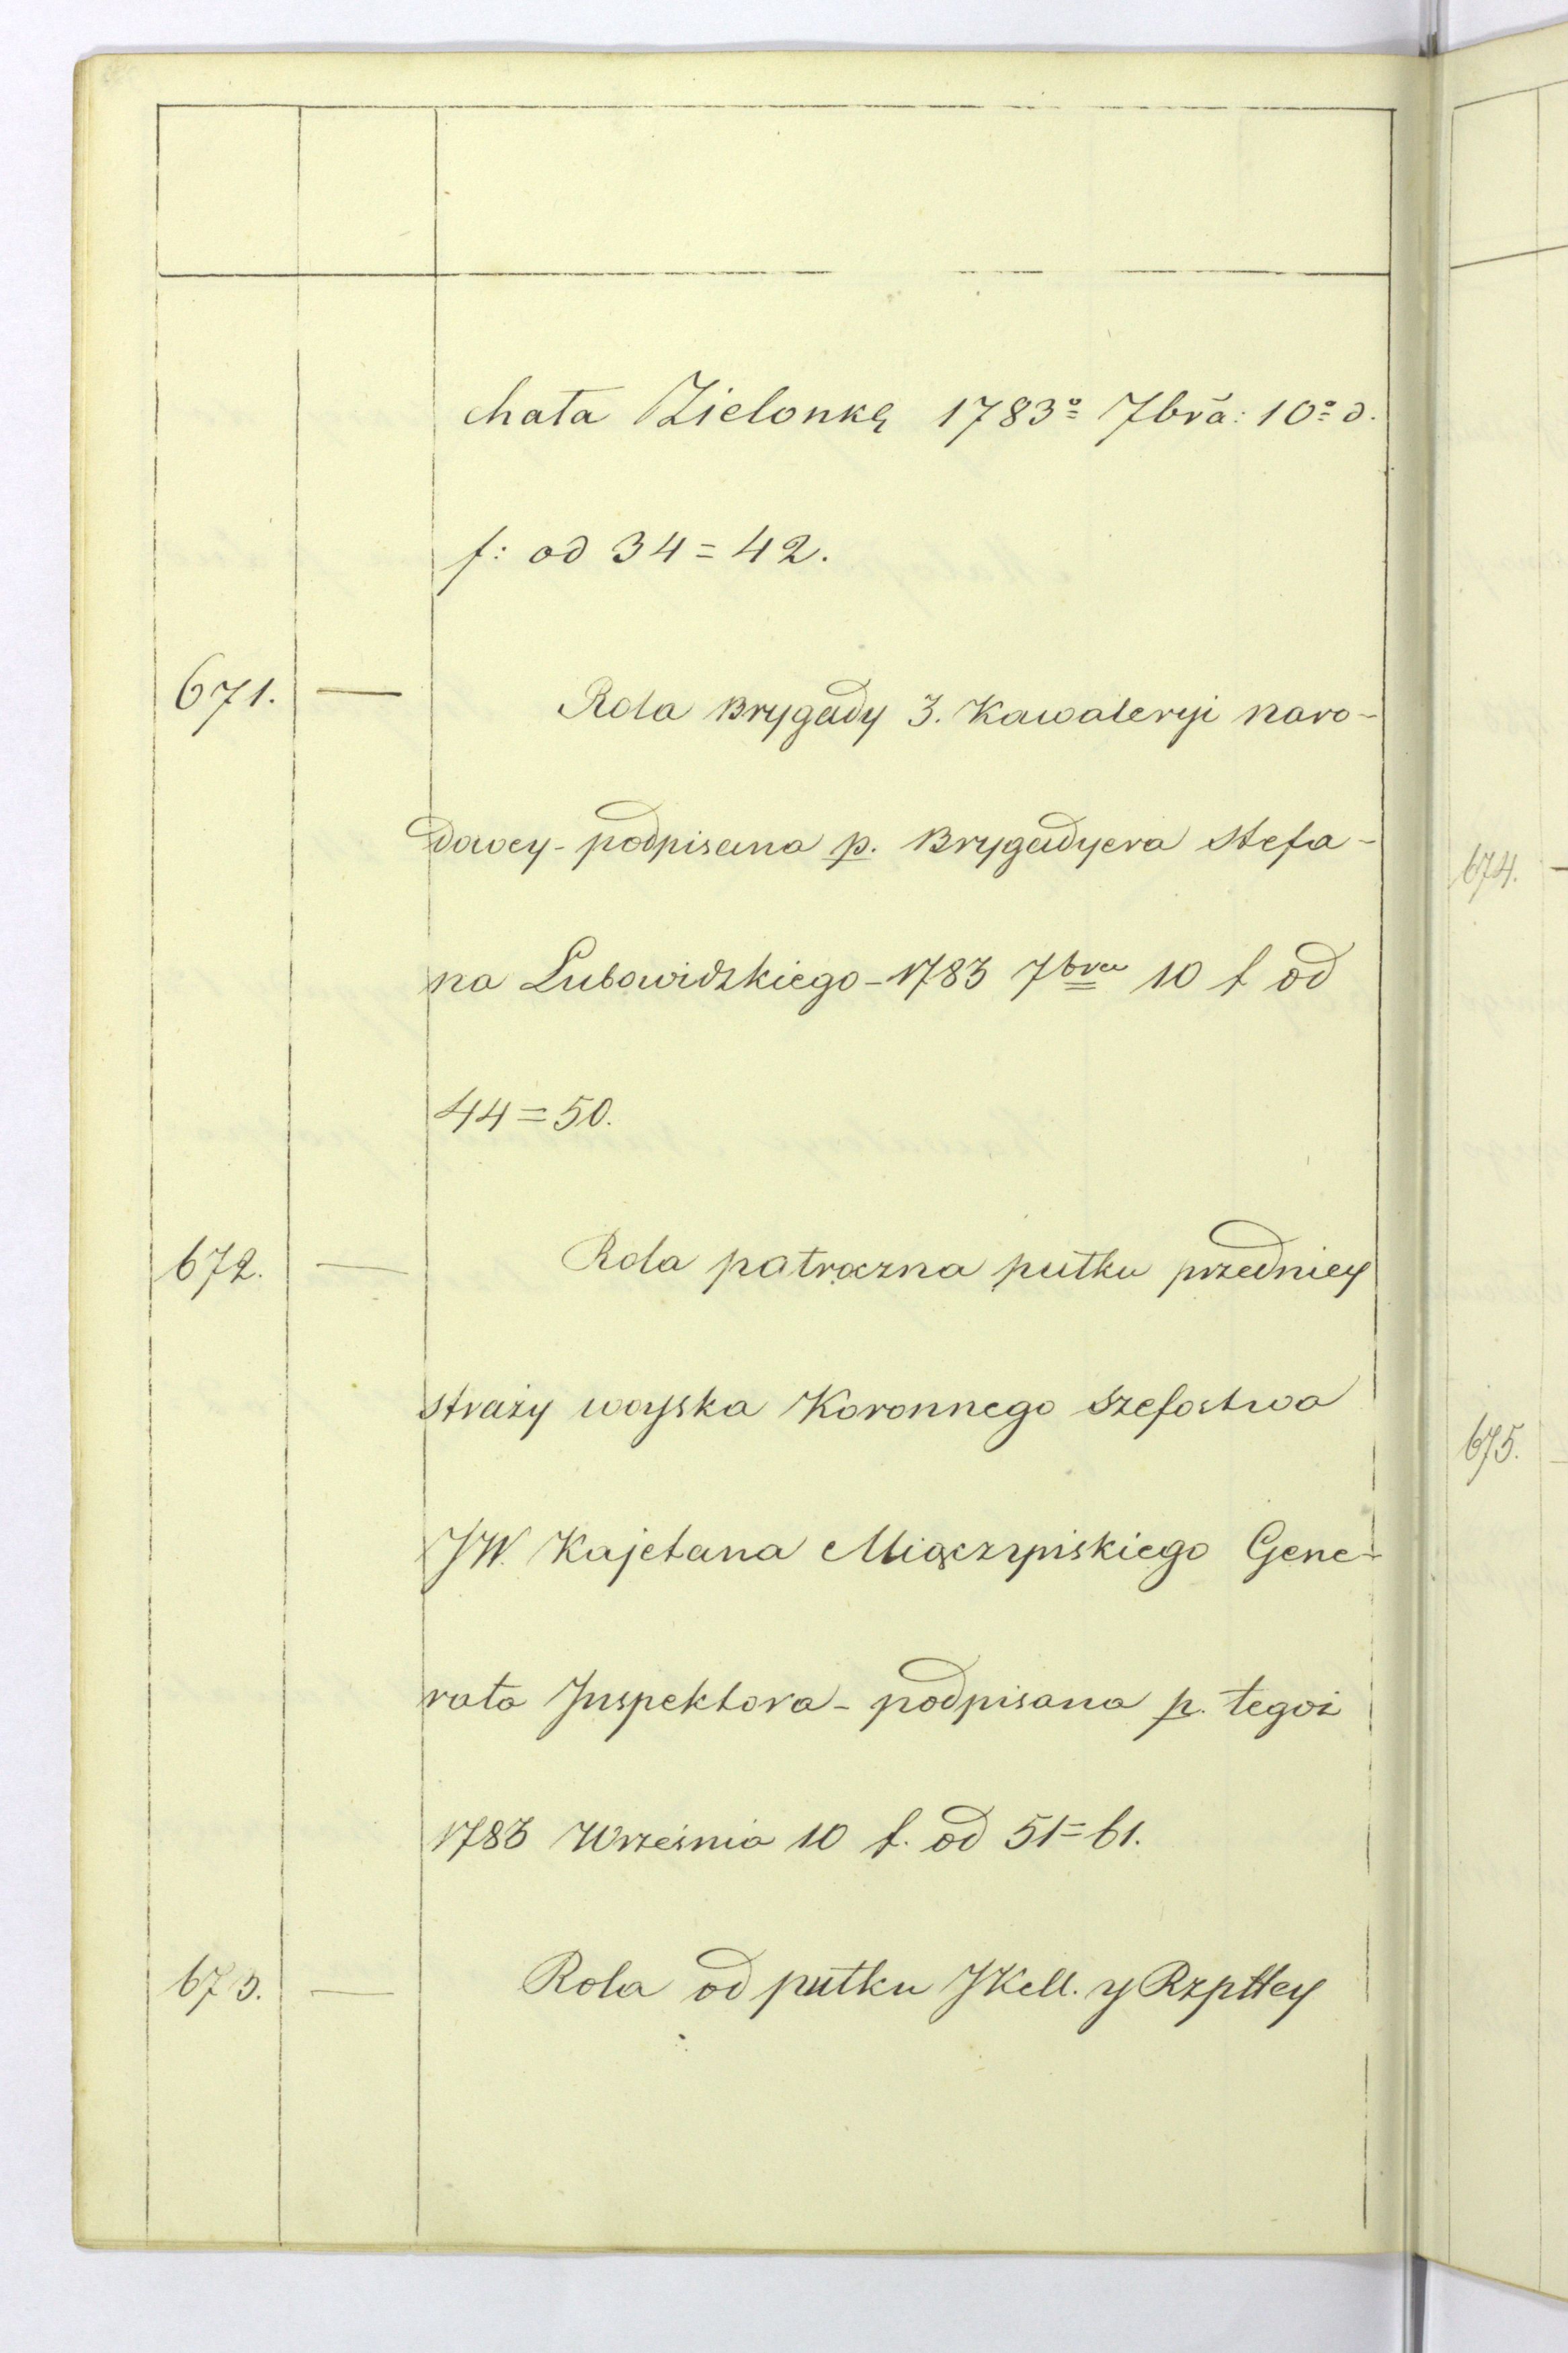 chała Zielonkę 1783º 7bra: 10º d.
f: od 34 = 42.
671. — Rola Brygady 3. Kawaleryi naro-
dowey - podpisana p. Brygadyera Stefa-
na Lubowidzkiego - 1783 7bra 10 f od
44 = 50.
672. — Rola patrączna pułku przedniey
straży woyska Koronnego Szefostwa
JW. Kajetana Miączyńskiego Gene-
rała Inspektora - podpisana p. tegoż
1783 Września 10 f. od 51 = 61.
673. — Rola od pułku JKcll. y Rzpttey
674. —
675. —